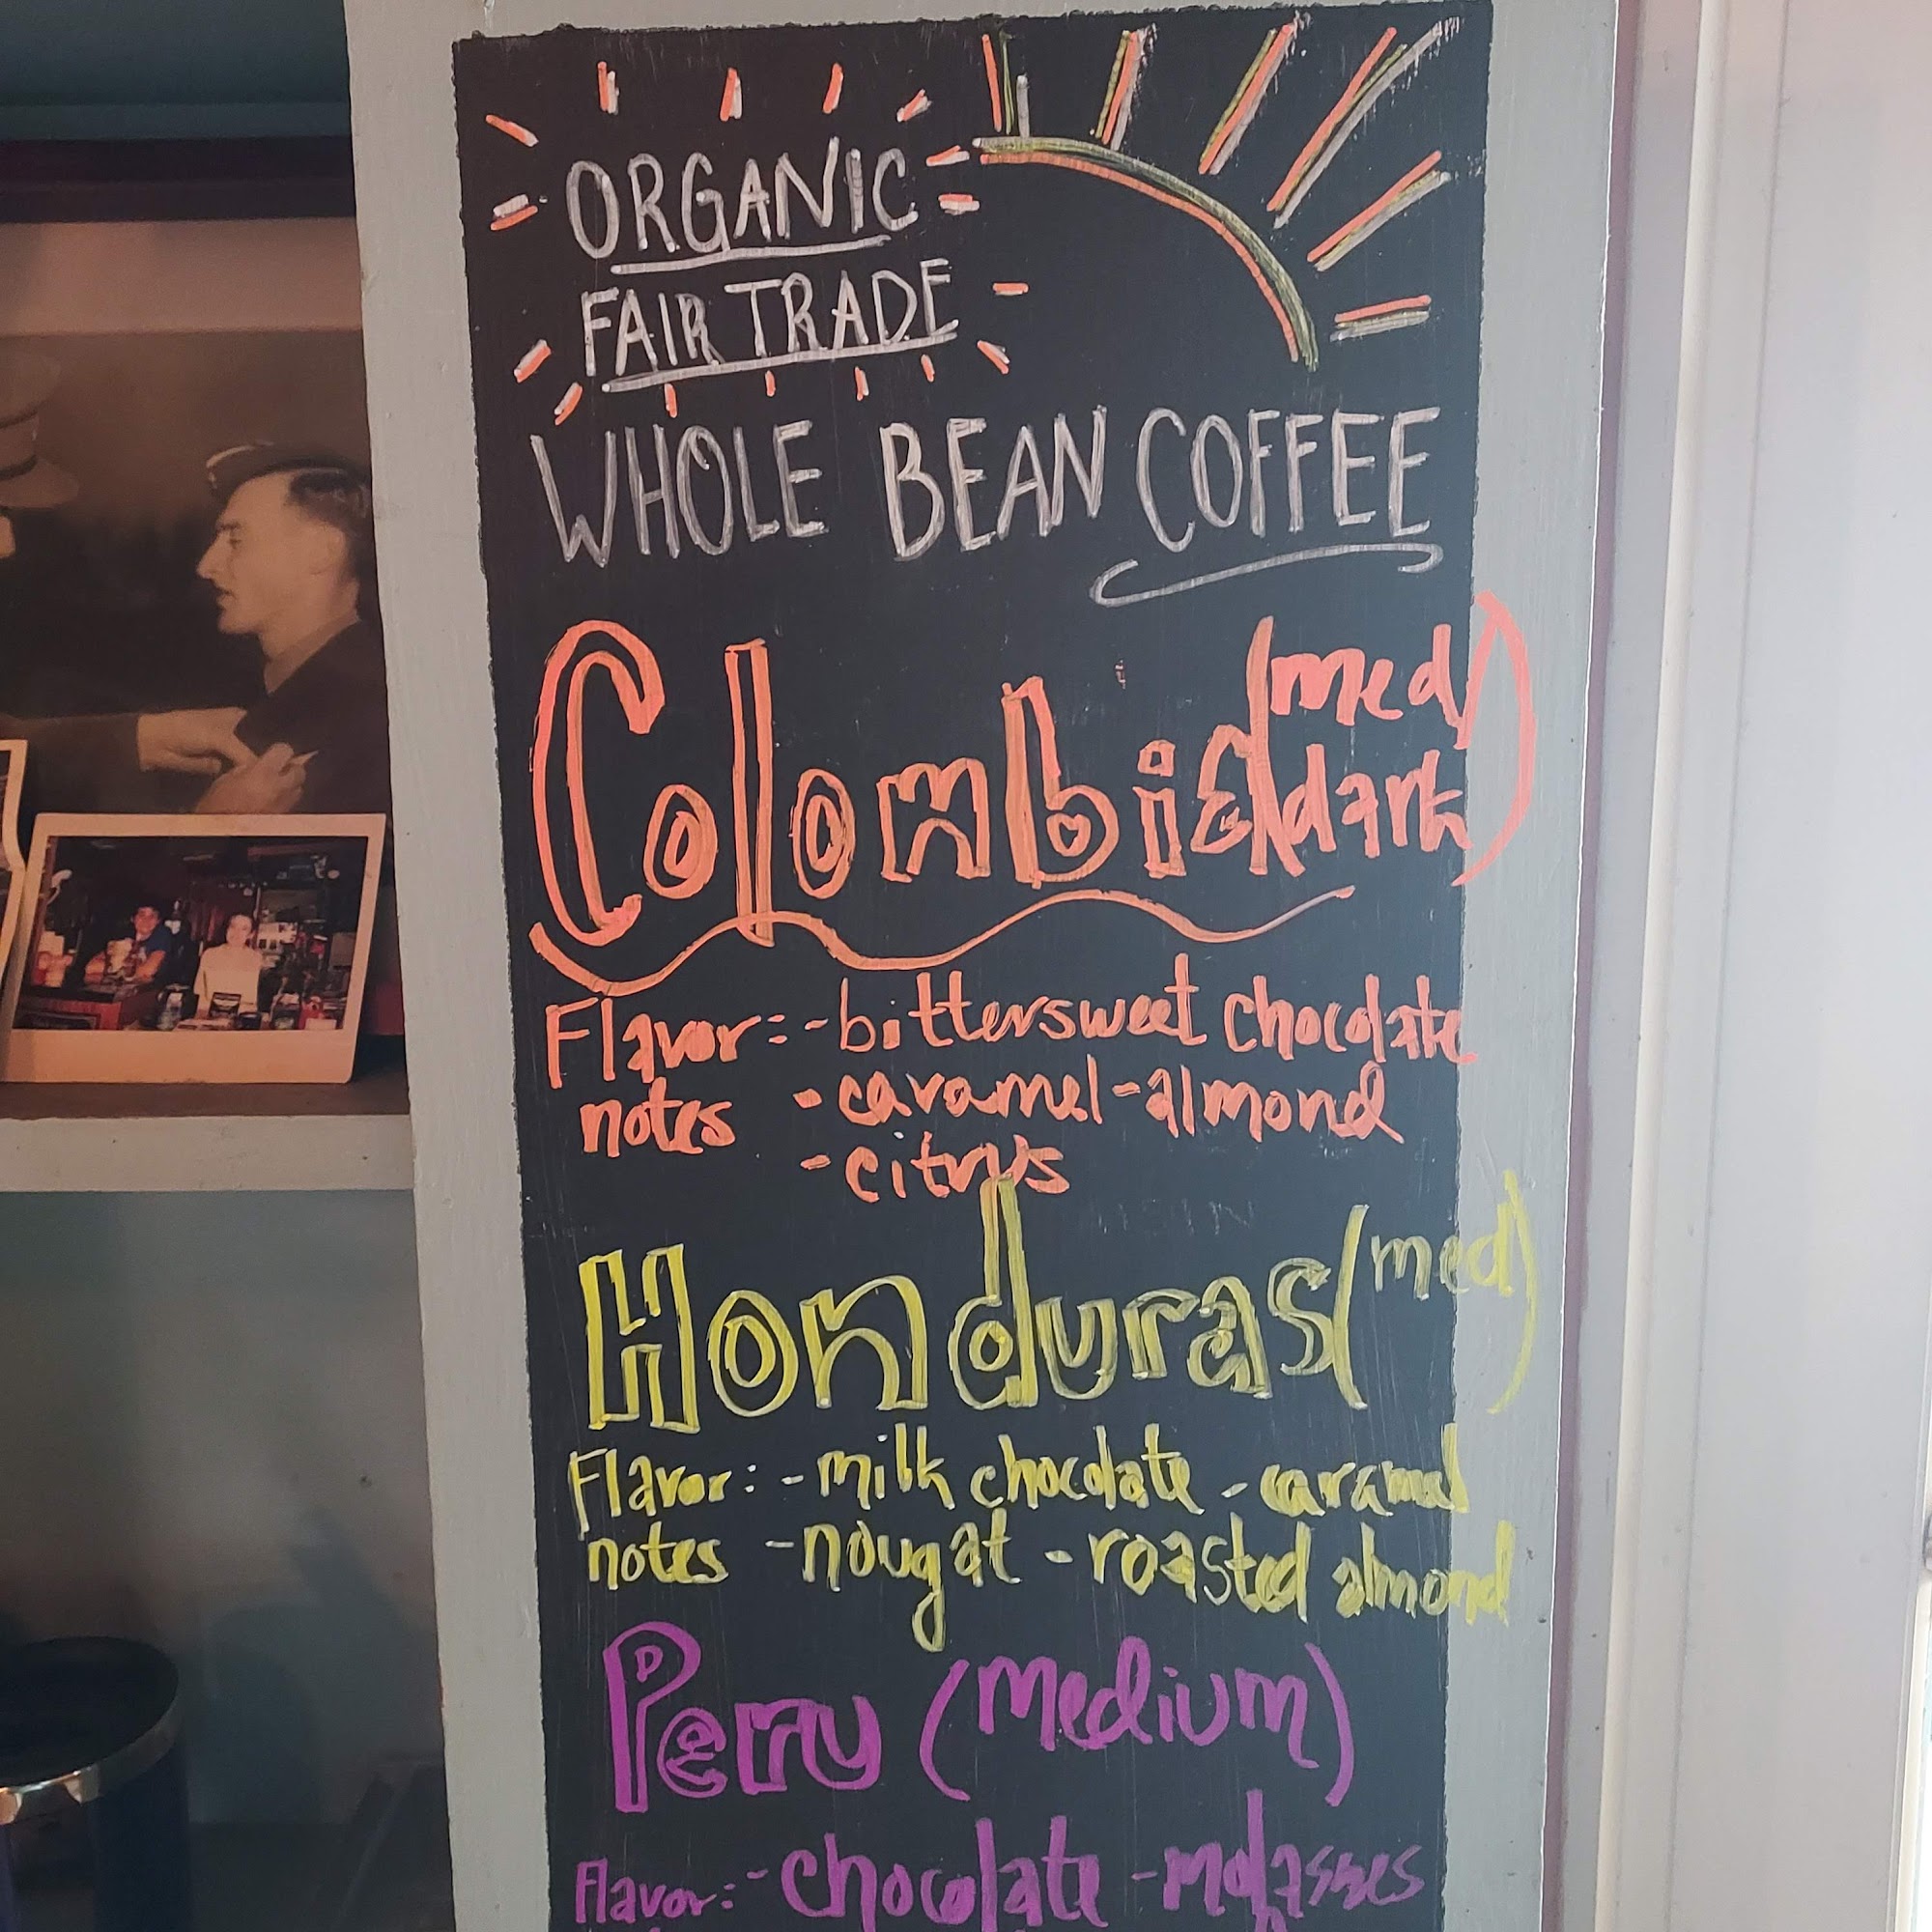 ORGANIC
FAIR TRADE
WHOLE BEAN COFFEE
Colombia (med dark)
Flavor: - bittersweet chocolate
notes - caramel - almond
- citrus
Honduras (med)
Flavor: - milk chocolate - caramel
notes - nougat - roasted almond
Peru (medium)
Flavor: - chocolate - molasses